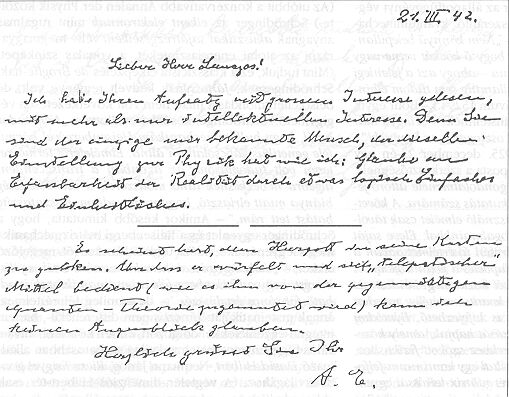 21. III. 42.
Lieber Herr Lanczos!
Ich habe Ihren Aufsatz mit grossem Interesse gelesen,
mit mehr als nur intellektuellem Interesse. Denn Sie
sind der einzige mir bekannte Mensch, der dieselbe
Einstellung zur Physik hat wie ich: Glaube an
Erfassbarkeit der Realität durch etwas logisch Einfaches
und Einheitliches.
Es scheint hart, dem Herrgott in seine Karten
zu gucken. Aber dass er würfelt und sich „telepathischer"
Mittel bedient (wie es ihm von der gegenwärtigen
Quanten-Theorie zugemutet wird) kann ich
keinen Augenblick glauben.
Herzlich grüsst Sie Ihr
A. E.